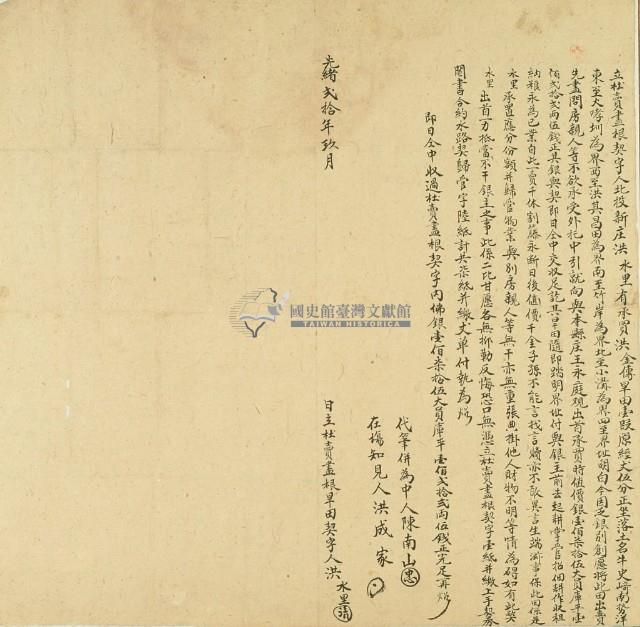 立杜賣盡根契字人北投新庄洪水里有承買洪金傳旱田壹段原經丈伍分正坐落土名牛史崎南勢洋
東至大哮圳為界西至洪其昌田為界南至竹岸為界北至小溝為界四至界址明白今因乏銀別創愿將此田出賣
先盡問房親人等不欲承受外托中引就向與本縣庄王永庭觀出首承買時值價銀壹佰柒拾伍大員庫平壹
佰貳拾貳兩伍錢正其銀與契即日仝中交收足訖其田隨即踏明界址付與銀主前去起耕掌管招佃耕作收租
納粮永為己業自此一賣千休割藤永斷日後值價千金子孫不能言找言贖亦不敢異言生端滋事保此田係是
水里承買應分份額并歸管物業與別房親人等無干亦無重張典掛他人財物不明等情為碍如有此契
水里出首一力抵當不干銀主之事此係二比甘愿各無抑勒反悔恐口無憑立杜賣盡根契字壹紙并繳上手契券
鬮書合約水路契歸管字陸紙計共柒紙并繳丈单付執為炤
即日仝中收過杜賣盡根契字內佛銀壹佰柒拾伍大員庫平壹佰貳拾貳兩伍錢正完足再炤
代筆併為中人陳南山
在塲知見人洪成家
光緒貳拾年玖月
日立杜賣盡根旱田契字人洪水里
國史館臺灣文獻館
TAIWAN HISTORICA